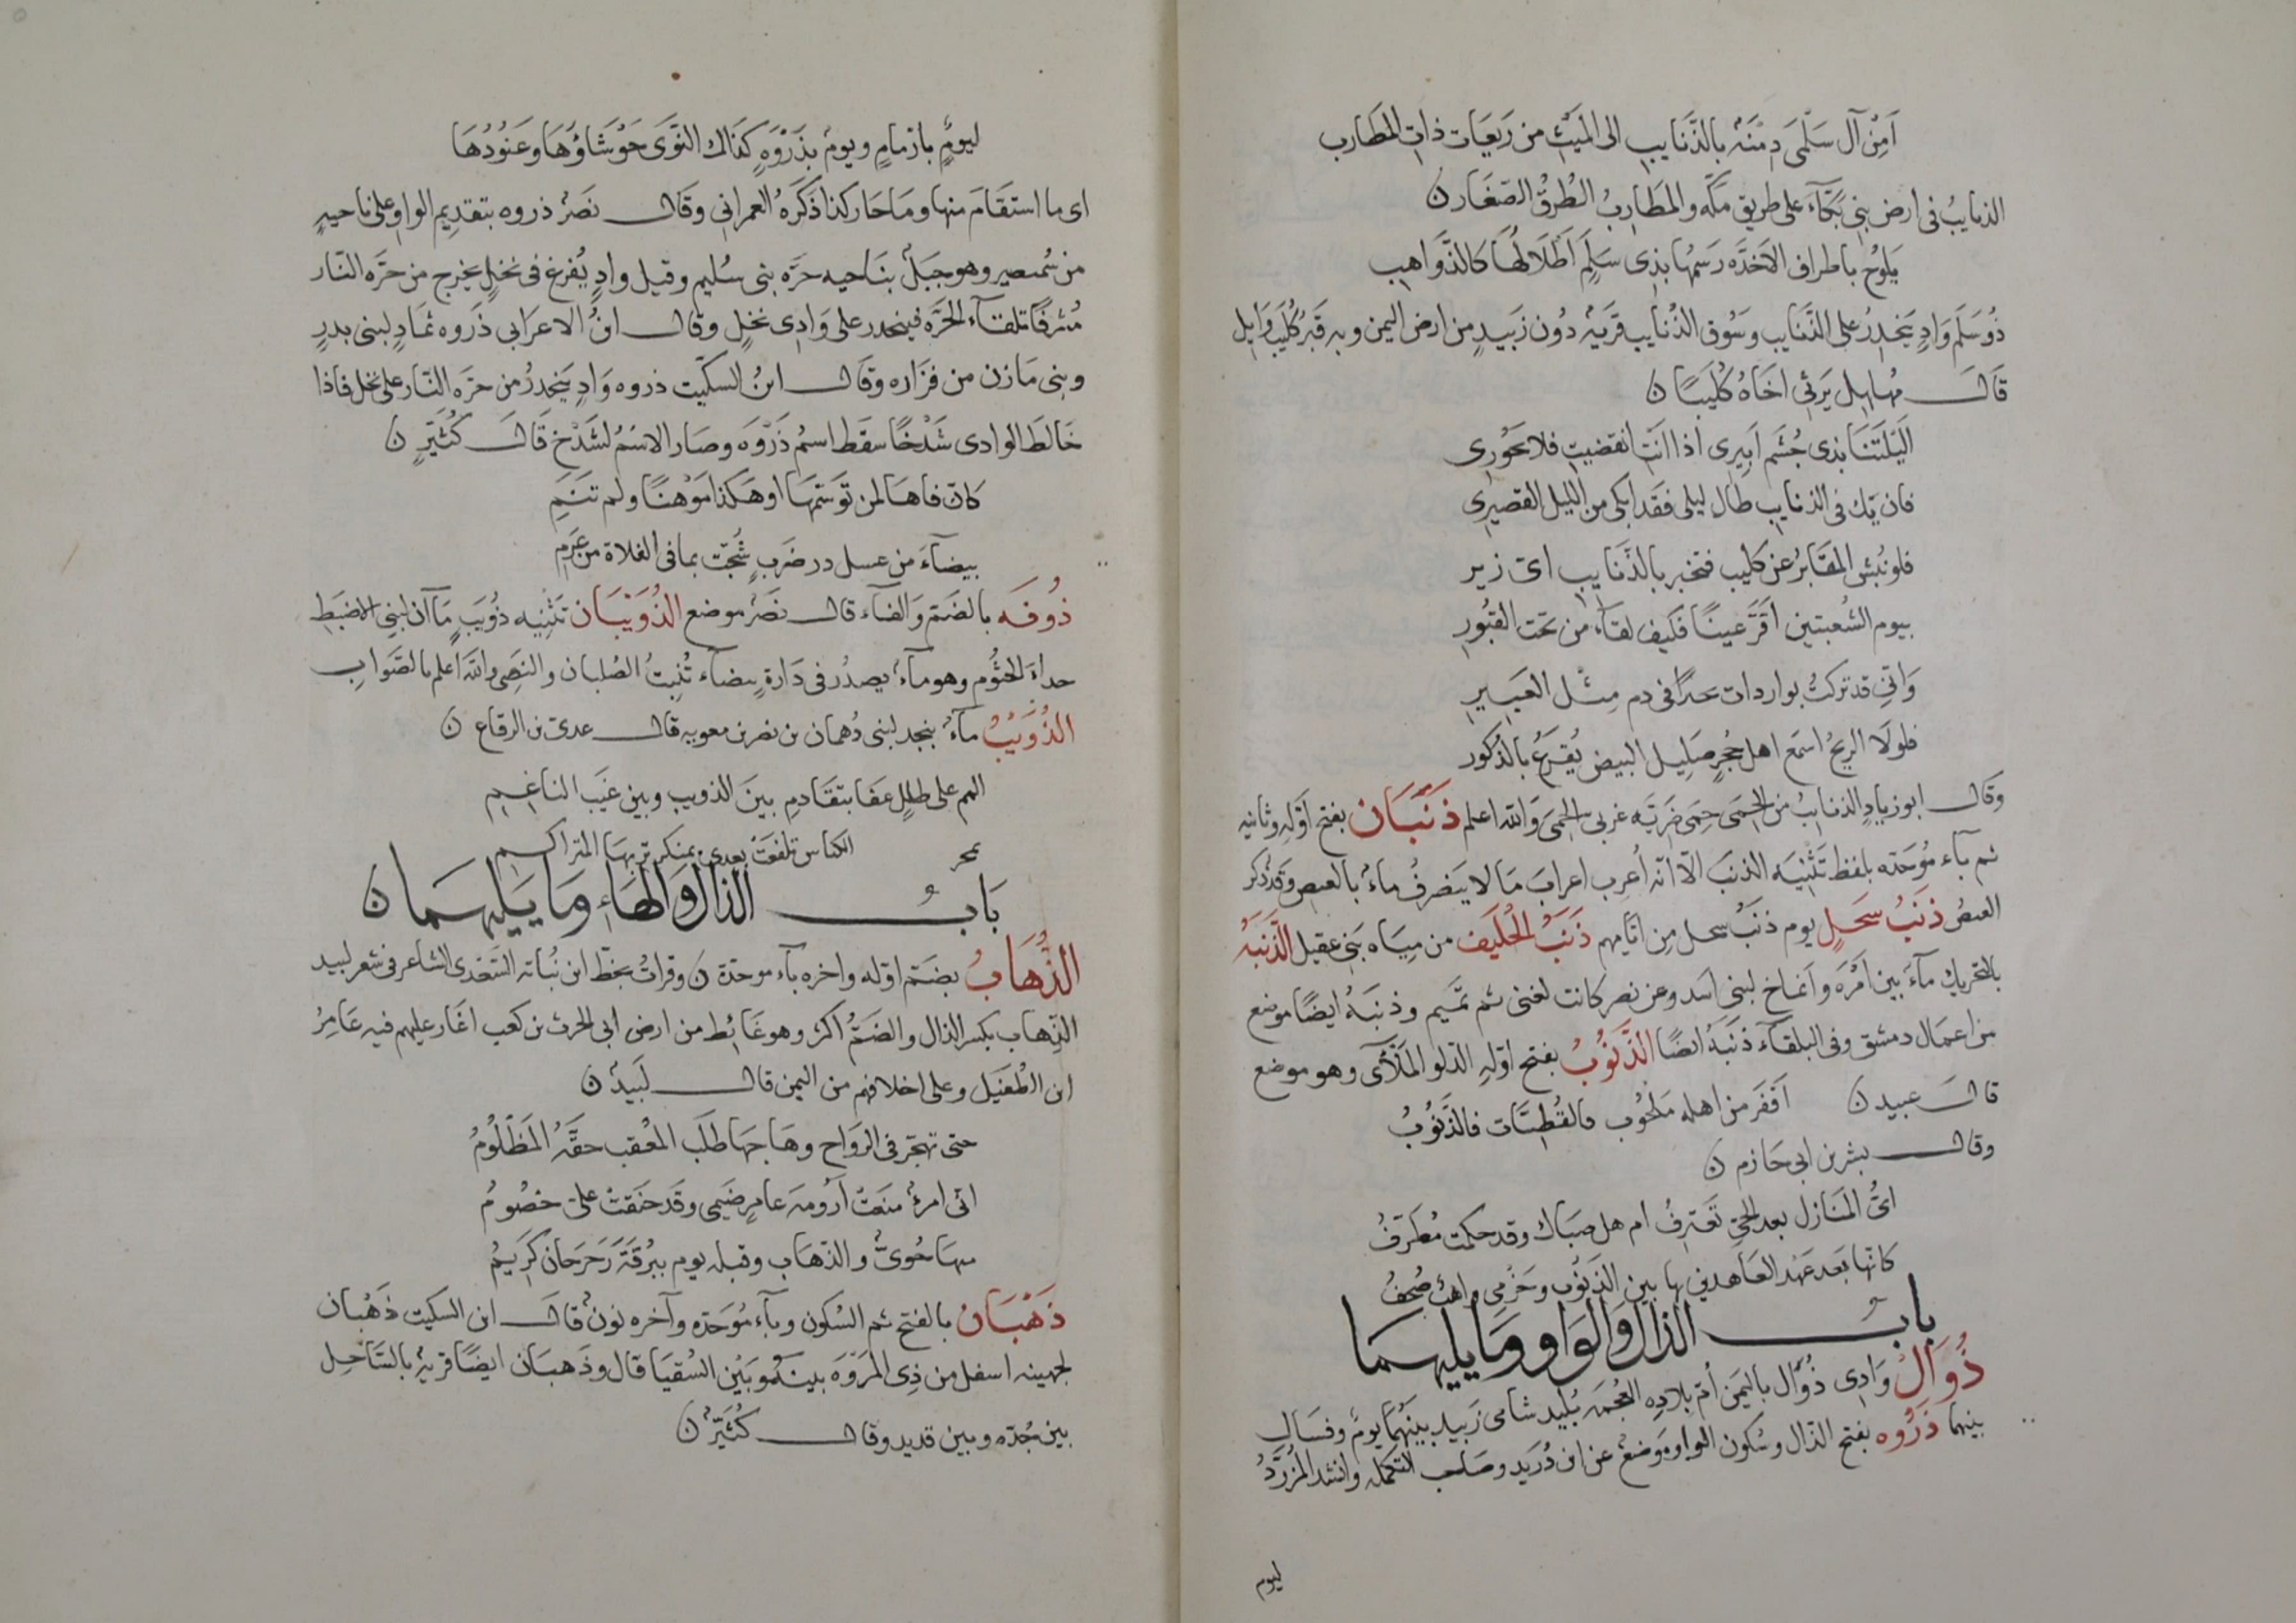 اَمِنْ آل سَلْمَى دِمْنَةٌ بالذَّنَايبِ الى المَيْثِ من رَيَعَات ذات المَطَارب
الذنايبُ فى ارض بنى بَكّآء على طريق مكّه والمَطَاربُ الطُرقُ الصّغار ن
يَلوُحُ باطراف الاَخدَّه رَسمُها بذى سَلَمٍ اَطْلَالُهَا كالذَّواهبِ
ذُو سَلَم وَادٍ يَنحَدِرُ على الذَّنايب وسُوق الذُنايب قريَةٌ دُون زَبيدٍ من ارض اليمن وبه قَبرُ كُليَب وَايل
قَالَ مهلهل يَرثى اخَاهُ كُلَيبًا ن
اَلَيْلَتَنَا بذى جُشَم اَبِيرى اذا انَتِ انقضيت فلا تَحُورى
فان يَك فى الذنايب طال ليلى فقَد ابكى من الليل القصيرى
فلو نُبشَ المقَابرُ عن كليب فتخبر بالذَّنَايب اىّ زير
بيوم الشُعبتين اَقَرَّ عينًا فكيف لقآء من تحت القُبُورِ
وَانّى قد تركتُ بواردات بجيرًا فى دم مِثْل العَبيرِ
فلولَا الريحُ اسمَع اهل حُجْرٍ صَلِيل البيض يُقرَعُ بالذكور
وقَال ابو زيادٍ الذنايبُ من الحِمَى حِمَى ضَريّه غربى الحمَى وَالله اعلم ذَنَبَان بفتح اوّله وثانيه
ثم بآء مُوَحدَه بلفظ تَثنِيَه الذنَب الّا انّه اُعرِب اعرابَ مَا لا يَنصَرفُ ماءٌ بالعيص وقَد ذكر
العيصُ ذَنَبُ سَحَلٍ يوم ذنَبُ سحل مِن ايّامِهم ذَنَبُ الحُلَيَف من مِيَاه بَنى عقيل الذَّنَبَةُ
بالتحريك مآءٌ بين اَمَّرَة وَاضاخ لبنى اسَد وعن نصر كانت لغنى ثم تميم وذنبَةُ ايضًا موضع
من اعمال دمشق وفى البلقآء ذنَبَةُ ايضًا الذَّنُوبُ بفتح اوّلهِ الدّلو المَلْآى وهو موضع
قالَ عبيد ن اَقفَر من اهله مَلحُوب فالقُطبيّات فالذَّنُوبُ
وقال بشر بن ابى حَازم ن
اىُّ المَنَازل بعد الحىّ تَعْتَرِفُ ام هل صبَاك وقد حكمت مُطَّرَفُ
كانّها بَعد عَهد العَاهدين بها بين الذَنوُب وحَزمَى واهب صُحُفُ
بابُ الذال وَالوَاو وَمَا يليهمَا
ذُوَالُ وَادِى ذُوَال باليمَن اُمّ بلادِه القحمَه بُليد شامى زَبيد بينَهُمَا يومٌ وفشال
بينهما ذَرْوَه بفتح الذال وسُكون الواو مَوضعٌ عن ابن دُرَيد وصَاحب التكمله وانشد المُزرّدُ
ليوم
ليومٌ بازمامٍ ويومٌ بذَرْوَهٍ كذَاك النَّوَى حَوْشَاؤُهَا وعَنُوُدُهَا
اى ما استقَامَ منها ومَا حَار كذا ذَكَرَهُ العمرانى وقَال نصَرٌ ذروه بتقديم الواو على ناحيهٍ
من شُمصير وهو جَبَلٌ بنَاحيه حرَّه بنى سُليم وقيل وادٍ يُفرغ فى نخلٍ يخرج من حرَّه النّار
مُشرفًا تلقآء الحرَّه فينحدر على وَادِى نخلٍ وقال ابنُ الاعرَابى ذَروه ثمَادٍ لبنى بدرٍ
وبنى مَازن من فزَاره وقَال ابنُ السكّيت ذروه وَادٍ يَنحَدرُ من حرَّه النّار على نخل فاذا
خَالطَ الوادى شَدْخًا سقَط اسمُ ذَرْوَه وصَار الاسْمُ لشَدْخ قَالَ كُثَيّرٍ ن
كانّ فاهَا لمن توَسّمهَا اوهَكذا مَوْهنًا ولم تنَمِ
بيضآءَ من عسل درضَربٍ شُجّت بما فى الفلاة من عَرِمِ
ذُوفَه بالضَم وَالفآء قال نصَرٌ موضع الذُوَيْبَان تثنيه ذوُيب مَآآن لبنى الاضبَط
حدآءَ الجثُوُم وهو مآءٌ يصدُر فى دَارة بيضآء تُنبتُ الصُلبان والنصِى والله اعلم بالصَّواب
الذُوَيْبُ مآءٌ بنجد لبنى دُهمان بن نصر بن معويه قال عدىّ بن الرقاع ن
المم على طللٍ عفا بتقَادمِ بينَ الذويب وبين غَيَب الناعَم
بحر الكناس تلفعتْ بعدى بمنكر تربهَا المتراكم
بَابُ الذَال وَالهَاء وَمَا يَليهمَا ن
الذُّهَابُ بضَم اوّله واخره بآء موحدة ن وقراتُ بخطّ ابن نُباته السَّعْدى الشاعر فى شعر لبيد
الذِهاب بكسر الذال والضَمُّ اكثر وهو غَائط من ارض ابى الحرث بن كعب اغار عليهم فيه عَامِرُ
ابن الطفَيل وعلى اخلافهم من اليمن قال لَبيدٌ ن
حتى تهجّر فى الرَوَاح وهَاجهَا طلَب المعُقب حقَّهُ المَظْلُومُ
انّى امرؤ منَعَتْ اَرُومةَ عامرٍ ضَيمى وقَد حَنَقتْ علىّ خصُومُ
منهَا حُوىٌّ والذهَاب وقبله يوم ببُرقَةَ رَحرَحانَ كَرِيمُ
ذَهْبَان بالفتح ثم السُكون وبآء مُوَحدَه وآخره نونٌ قالَ ابن السكيت ذَهْبان
لجهينه اسفل من ذِى المَرْوَه بينه وبَيْن السُقيَا قال وذَهبَان ايضًا قريةٌ بالسّاحِل
بين جُدّه وبين قديد وقال كُثيّرٌ ن